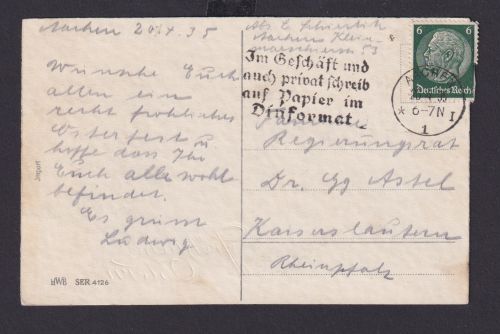 Aachen 20.4.35
Wünsche Euch
allen ein
recht fröhliches
Osterfest u
hoffe dass Ihr
Euch alle wohl
befindet.
Es grüsst
Ludwig
Import
HWB SER 4126
Abs. E.
Aachen Klein
marschierstr. 53
Im Geschäft und
auch privat schreib
auf Papier im
Dinformat
6 6
Deutsches Reich
AACHEN
* 6-7N I
1
Regierungsrat
Dr. Gg Assel
Kaiserslautern
Rheinpfalz